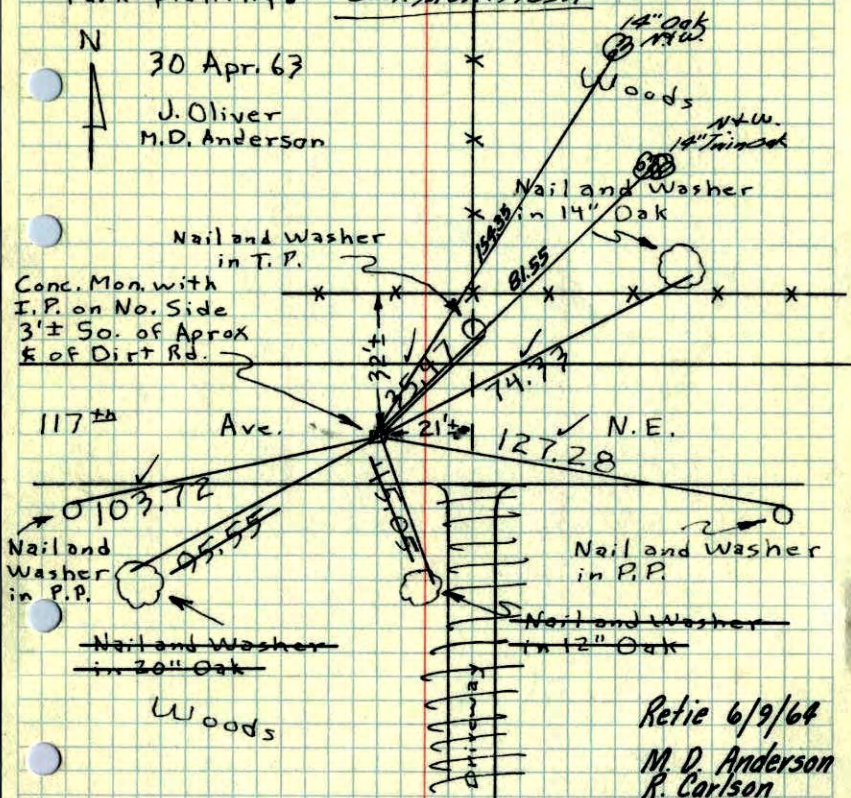 14" Oak
N&W.
N
30 Apr. 63
J. Oliver
M.D. Anderson
Woods
N&W.
14" Twin Oak
Nail and Washer
in 14" Oak
Nail and Washer
in T.P.
154.35
81.55
Conc. Mon. with
I.P. on No. Side
3'± So. of Aprox
℄ of Dirt Rd.
32'±
35.97
74.73
117th Ave. N.E.
21'±
127.28
103.72
95.55
45.05
Nail and
Washer
in P.P.
Nail and Washer
in P.P.
Nail and Washer
in 20" Oak
Nail and Washer
in 12" Oak
Woods
Driveway
Retie 6/9/64
M. D. Anderson
R. Carlson